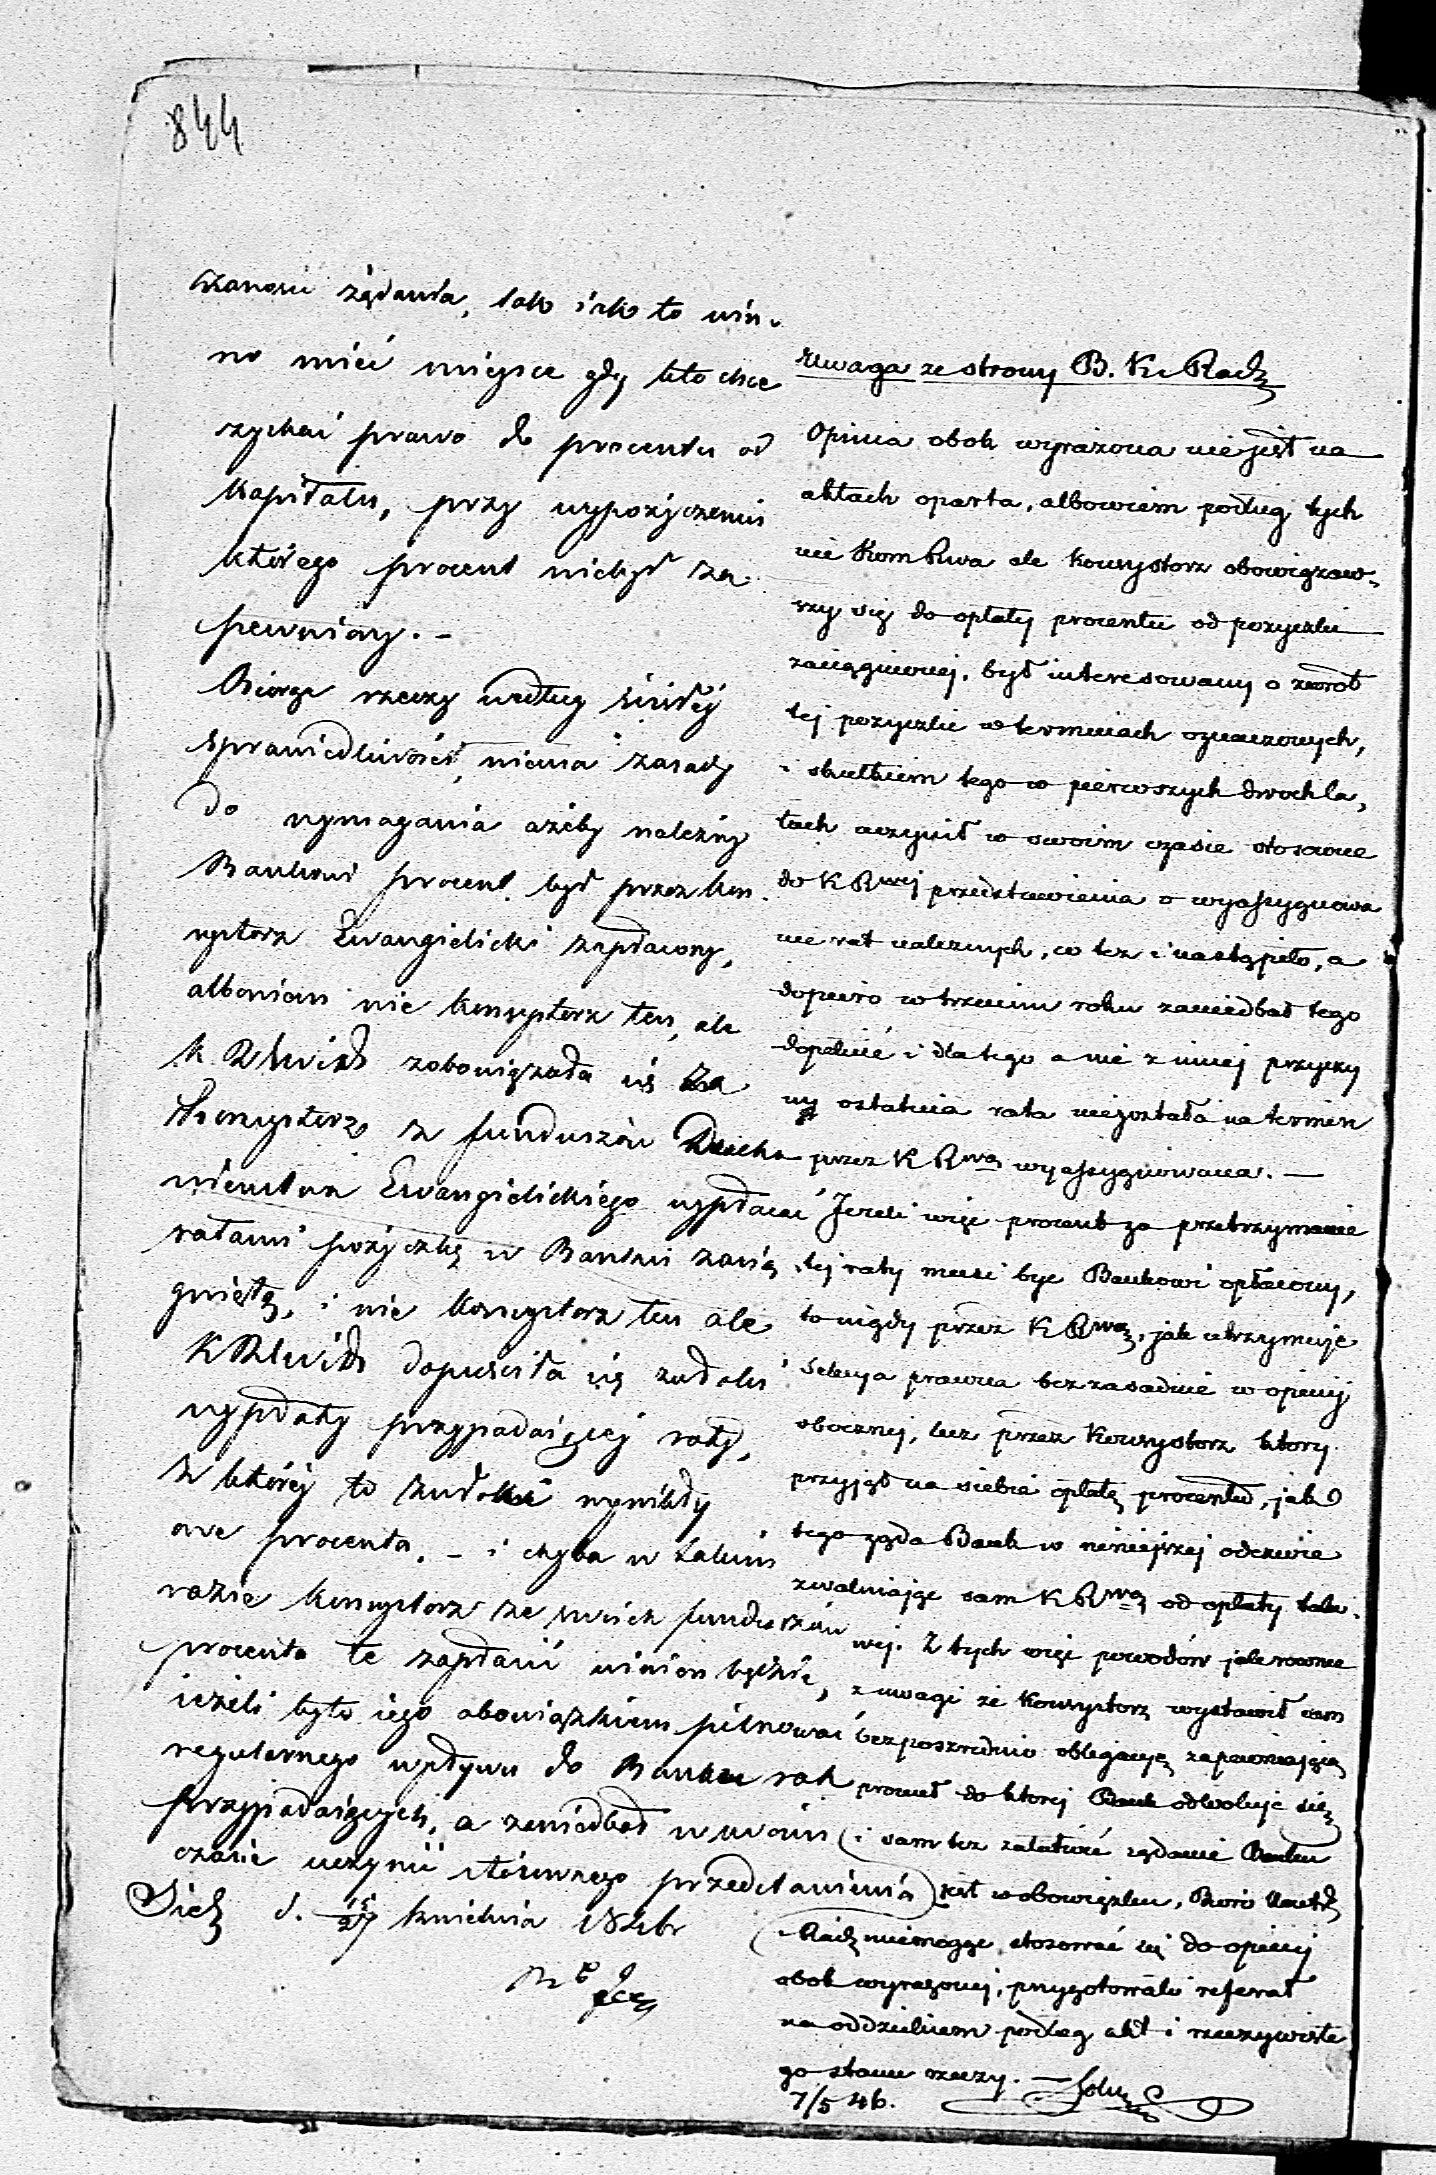 844
żądania, iak to win-
no mieć mieysce gdy kto chce
zyskać prawo do procentu od
kapitału, przy wypożyczeniu
którego procent niebył za-
pewniony. –
Biorąc rzeczy według ścisłéj
sprawiedliwości, niema zasady
do wymagania ażeby należny
Bankowi procent był przez Kon-
systorz Ewangielicki zapłacony,
albowiem nie Konsystorz ten, ale
K. R. zobowiązała się za
Konsystorz z funduszów Ducho-
wieństwa Ewangielickiego wypłacać
ratami pożyczkę w Banku zacią-
gniętą, i nie Konsystorz ten ale
K R dopuściła się zwłoki
wypłaty przypadaiącéj raty,
z któréj to zwłoki wynikły
owe procenta. – i chyba w takim
razie Konsystorz ze swoich funduszów
procenta te zapłacić winien będzie,
ieżeli było iego obowiązkiem pilnować
regularnego wpływu do Banku rat
przypadaiących, a zaniedbał w swoim
czasie uczynić stósownego przedstawienia
d. 15/27 kwietnia 1846r
Uwaga ze strony B. K. Radz
Opinia obok wyrażona nie jest na
aktach oparta, albowiem podług tych
nie Kom Rwa ale Konsystorz obowiązaw-
szy się do opłaty procentu od pożyczki
zaciągnionej, był interesowany o zwrot
tej pożyczki w terminach oznaczonych,
i skutkiem tego w pierwszych dwóch la-
tach uczynił w swoim czasie stosowne
do K Rwej przedstawienia o wyassygnowa
nie rat należnych, co też i nastąpiło, a
dopiero w trzecim roku zaniedbał tego
dopełnić i dla tego a nie z innej przyczy
ny ostatnia rata niezostała na termin
przez K Rwą wyassygnowana. –
Jeżeli więc procent za przetrzymanie
tej raty musi być Bankowi opłacony,
to nigdy przez K Rwą, jak utrzymuje
Sekcya prawna bezzasadnie w opinij
obocznej, lecz przez Konsystorz który
przyjął na siebie opłatę procentu, jak
tego żąda Bank w niniejszej odezwie
zwalniając sam K Rwą od opłaty tako-
wej. Z tych więc powodów jak równie
z uwagi że Konsystorz wystawił sam
bezpośrednio obligacyę zapewniającą
procent do której Bank odwołuje się
i sam też załatwić żądanie Banku
jest w obowiązku, Biuro Kontr
i Radz niemogąc stosować się do opinij
obok wyrażonej, przygotowało referat
na oddzielnem podług akt i rzeczywiste
go stanu rzeczy. –
7/5 46.